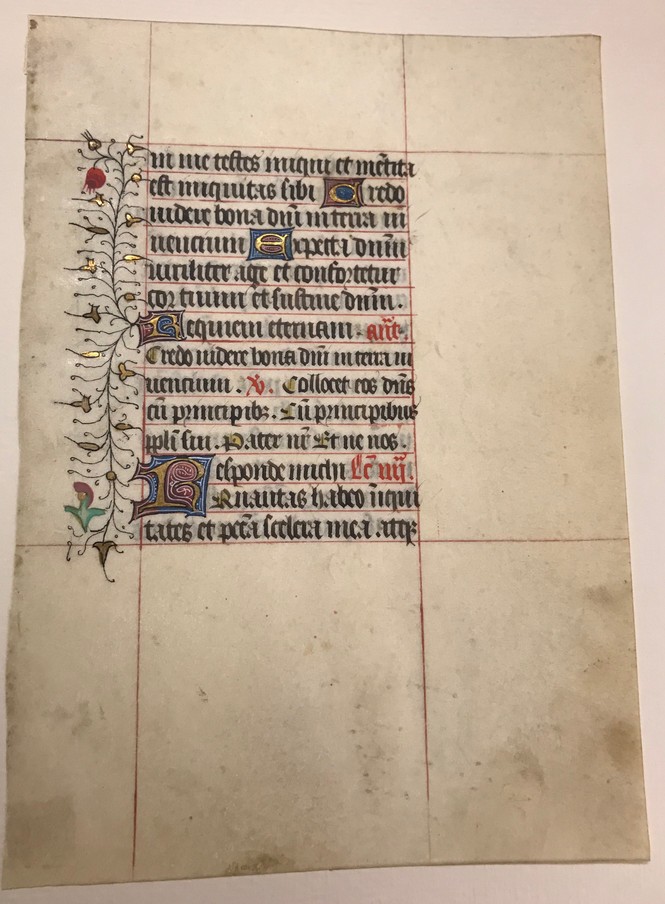 in me testes iniqui et mẽtita
est iniquitas sibi Credo
uidere bona dñi in terra ui
uencium Expecta dñm
uiriliter age et confortetur
cor tuum et sustine dñm.
Requiem eternam. añt.
Credo uidere bona dñi in terra ui
uencium. V. Collocet eos dñs
cũ principibꝫ. Cũ principibus
ppl̃i sui. Pater nr̃ Et ne nos.
Responde michi Lc̃ iiij.
Quantas habeo iniqui
tates et pctã scelera mea atqꝫ